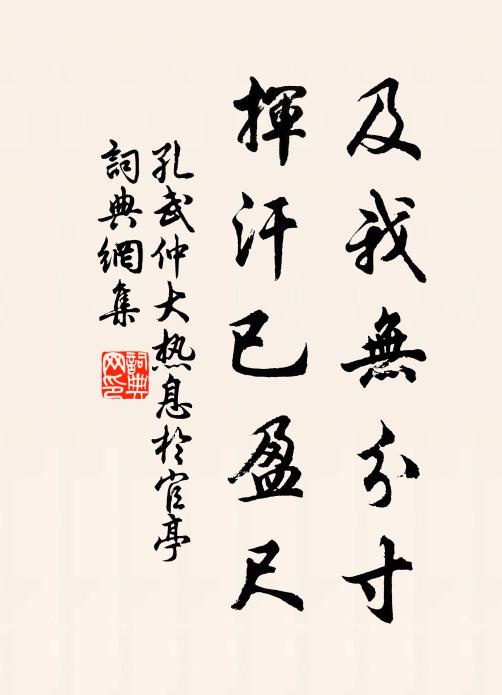 及我無分寸
揮汗已盈尺
孔武仲大热息於官亭
詞典網集
詞典網印